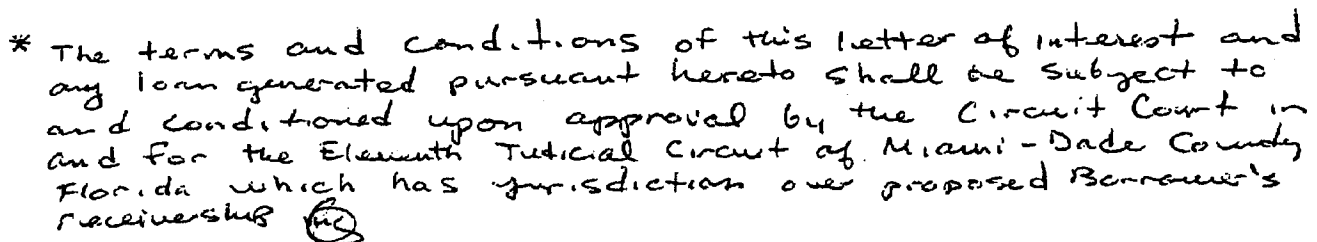 * The terms and conditions of this letter of interest and
any loan generated pursuant hereto shall be subject to
and conditioned upon approval by the Circuit Court in
and for the Eleventh Judicial Circuit of Miami-Dade County
Florida which has jurisdiction over proposed Borrower's
receivership